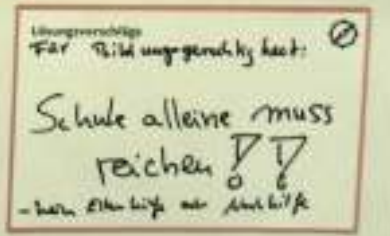 Lösungsvorschläge
Für Bildungsgerechtigkeit:
Schule alleine muss
reichen !!
- kein Elternhilfe oder Nachhilfe